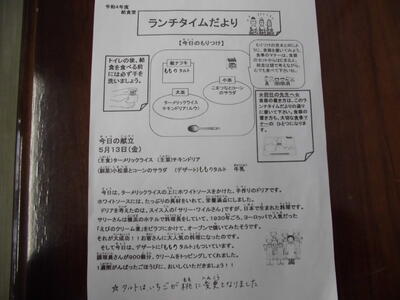 令和4年度
給食室
ランチタイムだより
【今日のもりつけ】
トイレの後、給
食を食べる前
には必ず手を
洗いましょう。
紙ナフキン
ももりタルト
小皿
こまつなとコーンの
サラダ
大皿
ターメリックライス
チキンドリア(ルウ)
☆担任の先生へ☆
今日の献立
5月13日(金)
(主食)ターメリックライス (主菜)チキンドリア
(副菜)小松菜とコーンのサラダ (デザート)ももりタルト 牛乳
今日は、ターメリックライスの上にホワイトソースをかけた、手作りのドリアです。
ホワイトソースには、たっぷりの具材をいれて、栄養満点にしました。
ドリアを考えたのは、スイス人の「サリー・ワイルさん」ですが、日本で生まれた料理です。
サリーさんは横浜のホテルで料理長をしていて、1930年ごろ、ヨーロッパで人気だった
「えびのクリーム煮」をピラフにかけて、オーブンで焼いてみたそうです。
それが大成功!!お客さんに大人気の料理になったのです。
そして今日は、デザートに「ももりタルト」もついています。
調理員さんが900個分、クリームをトッピングしてくれました。
1週間がんばったごほうびに、おいしくいただきましょう!!
☆タルトは、いちごが桃に変更となりました